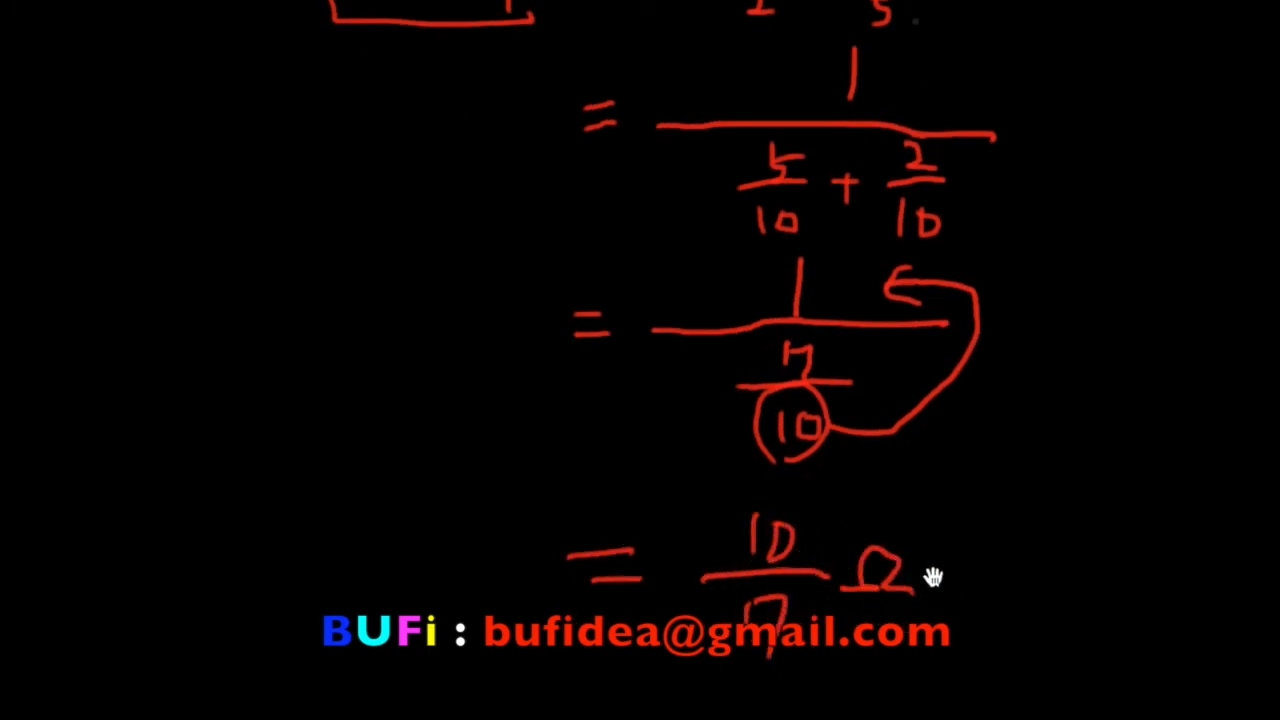 2 5
1
=
5/10 + 2/10
1
=
7/10
= 10/7 Ω
BUFi : bufidea@gmail.com